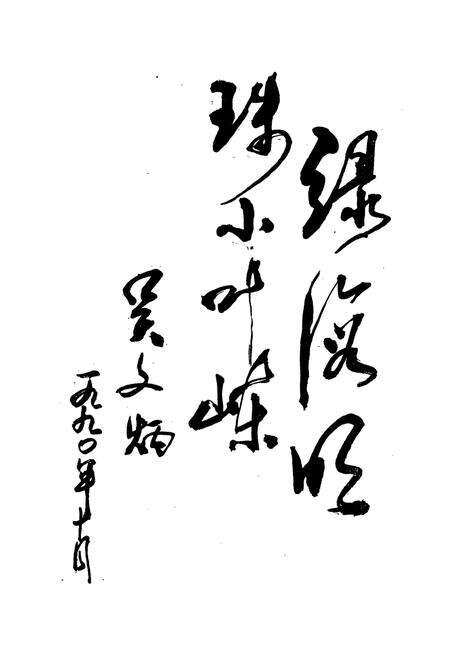 绿海明
珠小叶嶫
吴文炳
一九九〇年十月